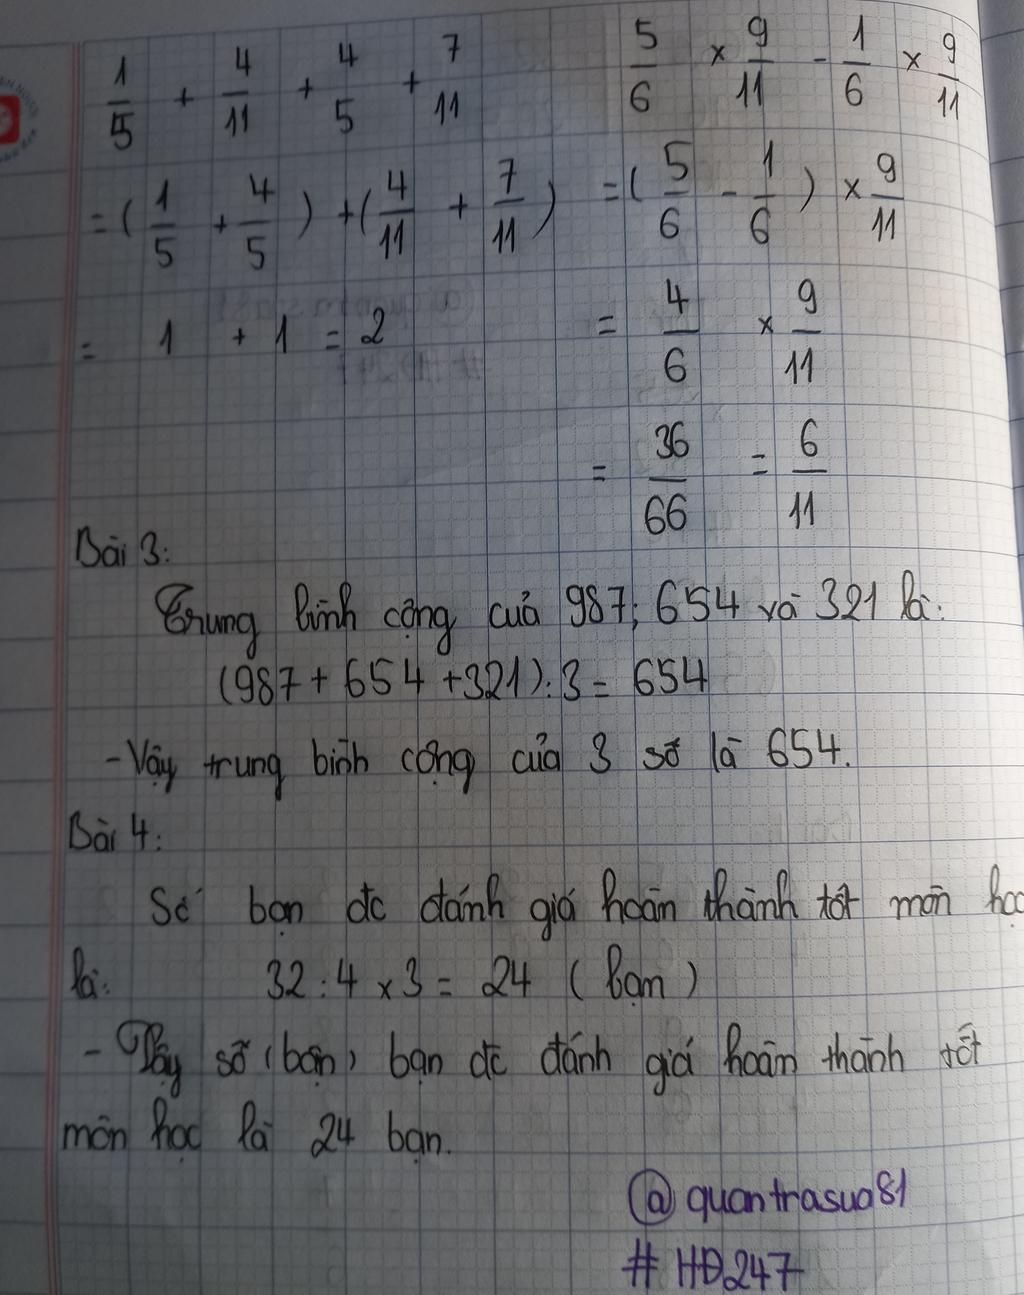 1/5 + 4/11 + 4/5 + 7/11
= (1/5 + 4/5) + (4/11 + 7/11)
= 1 + 1 = 2
5/6 × 9/11 - 1/6 × 9/11
= (5/6 - 1/6) × 9/11
= 4/6 × 9/11
= 36/66 = 6/11
Bài 3:
Trung bình cộng của 987; 654 và 321 là:
(987 + 654 + 321) : 3 = 654
- Vậy trung bình cộng của 3 số là 654.
Bài 4:
Số bạn đc đánh giá hoàn thành tốt môn học
là: 32 : 4 × 3 = 24 (bạn)
- Vậy số (bạn) bạn đc đánh giá hoàn thành tốt
môn học là 24 bạn.
@quantrasua81
#HĐ247